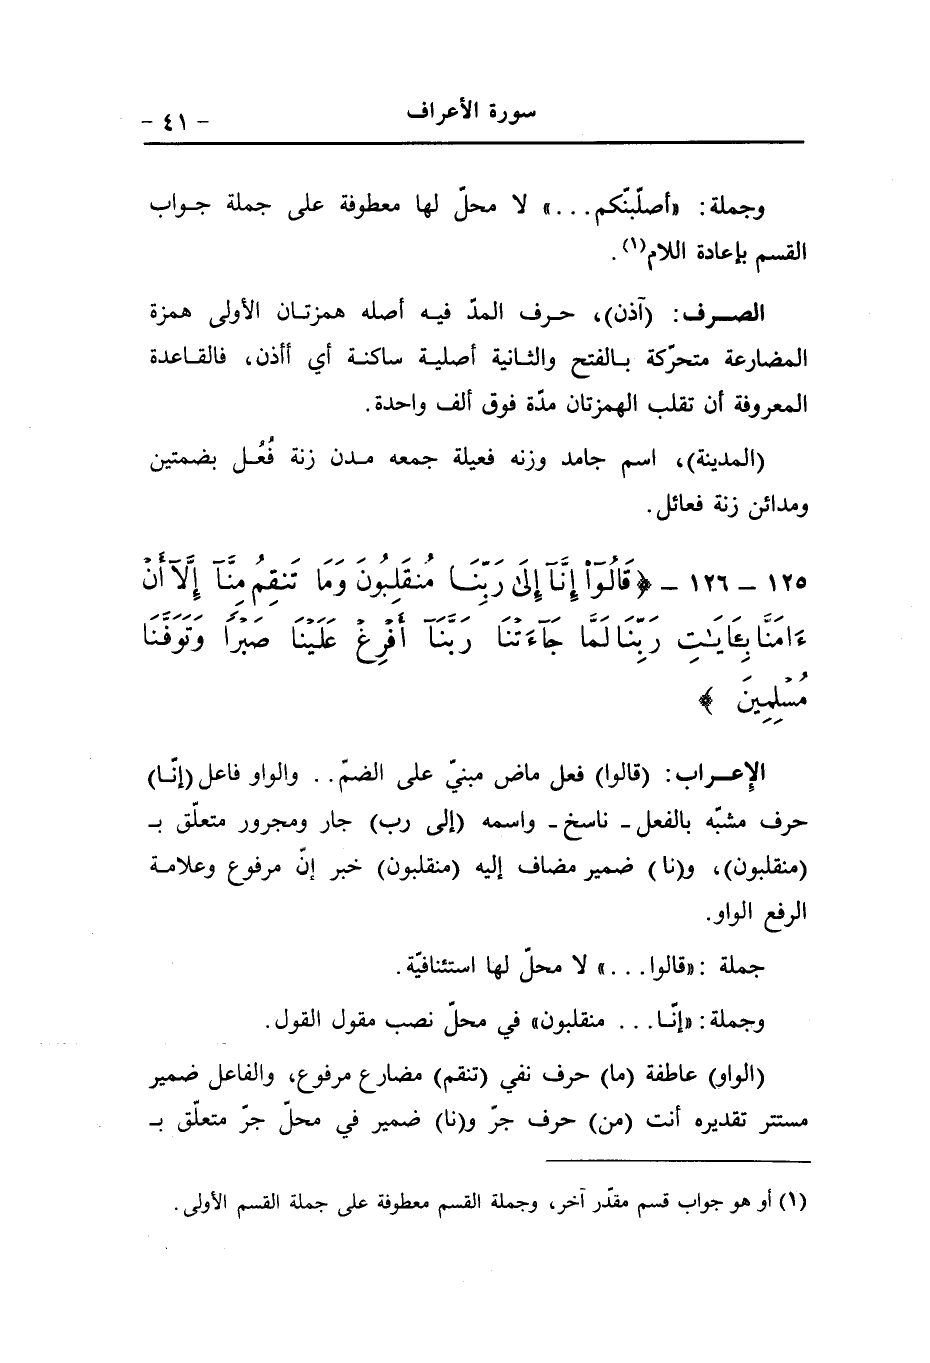 سورة الأعراف
- ٤١ -
وجملة: «أصلّبنّكم...» لا محلّ لها معطوفة على جملة جـواب
القسم بإعادة اللام(١).
الصـــرف: (آذن)، حـرف المدّ فيـه أصله همزتـان الأولى همزة
المضارعة متحرّكة بـالفتح والثـانية أصليـة ساكنـة أي أأذن، فالقـاعدة
المعروفة أن تقلب الهمزتان مدّة فوق ألف واحدة.
(المدينة)، اسم جامد وزنه فعيلة جمعه مـدن زنة فُعُـل بضمتين
ومدائن زنة فعائل.
١٢٥ - ١٢٦ - ﴿قَالُوٓا۟ إِنَّآ إِلَىٰ رَبِّنَـا مُنقَلِبُونَ وَمَا تَنقِمُ مِنَّآ إِلَّآ أَنْ
ءَامَنَّا بِـَٔايَـٰتِ رَبِّنَا لَمَّا جَآءَتْنَا رَبَّنَآ أَفْرِغْ عَلَيْنَا صَبْرًا وَتَوَفَّنَا
مُسْلِمِينَ ﴾
الإعـــراب: (قالوا) فعل ماض مبنيّ على الضمّ.. والواو فاعل (إنّـا)
حرف مشبّه بالفعل ـ ناسخ ـ واسمه (إلى رب) جار ومجرور متعلّق بـ
(منقلبون)، و(نا) ضمير مضاف إليه (منقلبون) خبر إنّ مرفوع وعلامـة
الرفع الواو.
جملة : «قالوا...» لا محلّ لها استئنافيّة.
وجملة: «إنّـا... منقلبون» في محلّ نصب مقول القول.
(الواو) عاطفة (ما) حرف نفي (تنقم) مضارع مرفوع، والفاعل ضمير
مستتر تقديره أنت (من) حرف جرّ و(نا) ضمير في محلّ جرّ متعلّق بـ
(١) أو هو جواب قسم مقدّر آخر، وجملة القسم معطوفة على جملة القسم الأولى.